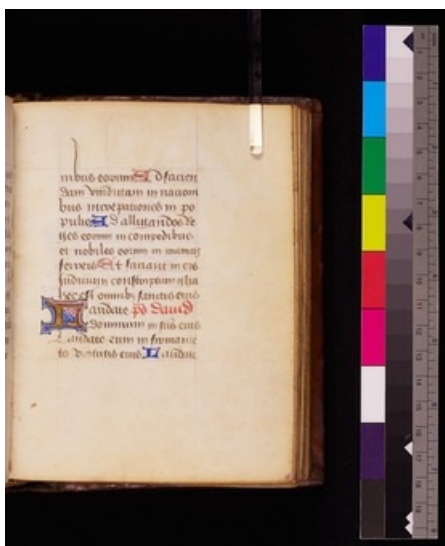 nibus eorum Ad facien
dam vindictam in nacioni
bus increpationes in po
pulis Ad alligandos re
ges eorum in compedibus
et nobiles eorum in manicis
ferreis Et faciant in eis
judicium conscriptum gloria
hec est omnibus sanctis eius
Laudate ps david
dominum in sctis eius
Laudate eum in firmamē
to virtutis eius Laudate